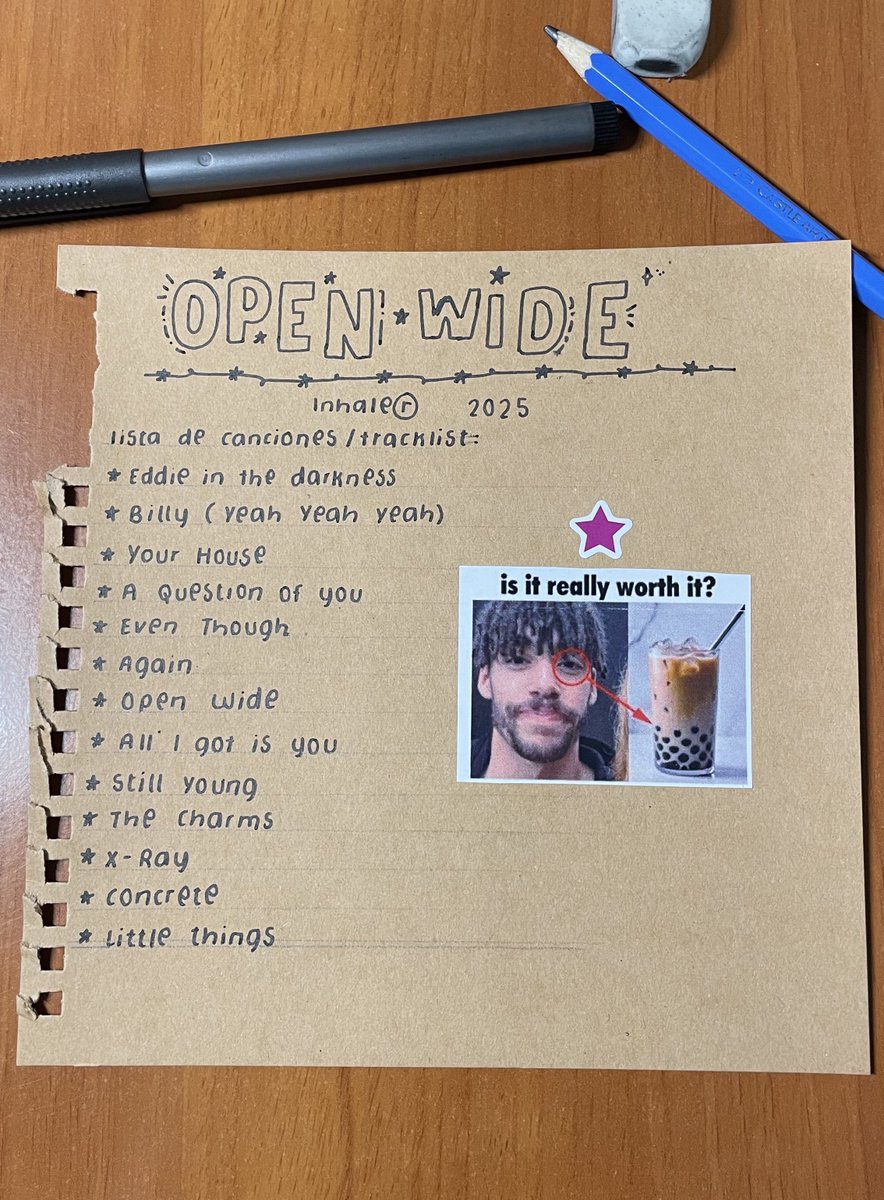 CASTLE ART
OPEN WIDE
Inhaler 2025
lista de canciones/tracklist:
Eddie in the darkness
Billy (Yeah Yeah Yeah)
Your House
A Question of you
Even Though
Again
Open wide
All I got is you
Still Young
The Charms
X-Ray
Concrete
Little things
is it really worth it?